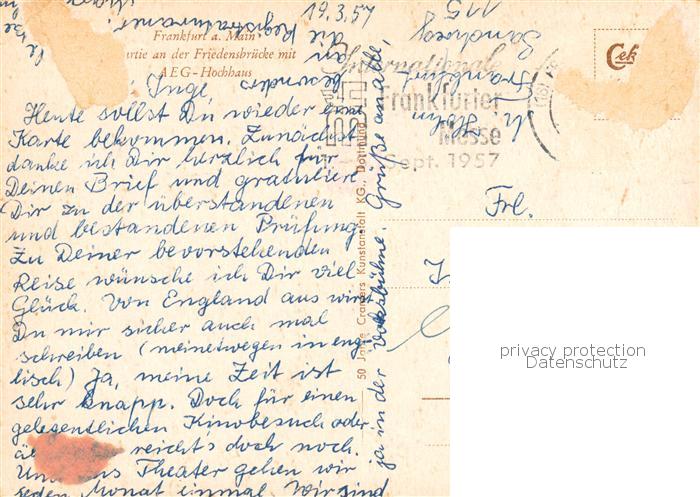 19.3.57
115
Sandweg
Frankfurt
die Registraturarei
an
besonders
Frankfurt a. Main
Partie an der Friedensbrücke mit
AEG-Hochhaus
Internationale
Frankfurter
Messe
Sept. 1957
Cek
Inge,
Heute sollst Du wieder eine
Karte bekommen. Zunächst
danke ich Dir herzlich für
Deinen Brief und gratuliere
Dir zu der überstandenen
und bestandenen Prüfung.
Zu Deiner bevorstehenden
Reise wünsche ich Dir viel
Glück. Von England aus wirst
Du mir sicher auch mal
schreiben (meinetwegen in eng-
lisch) Ja, meine Zeit ist
sehr knapp. Doch für einen
gelegentlichen Kinobesuch oder
reicht's doch noch.
Theater gehen wir
jeden Monat einmal. Wir sind
ja in der Volksbühne. Grüße an alle,
50 Jahre Cramers Kunstanstalt KG., Dortmund
Frl.
privacy protection
Datenschutz